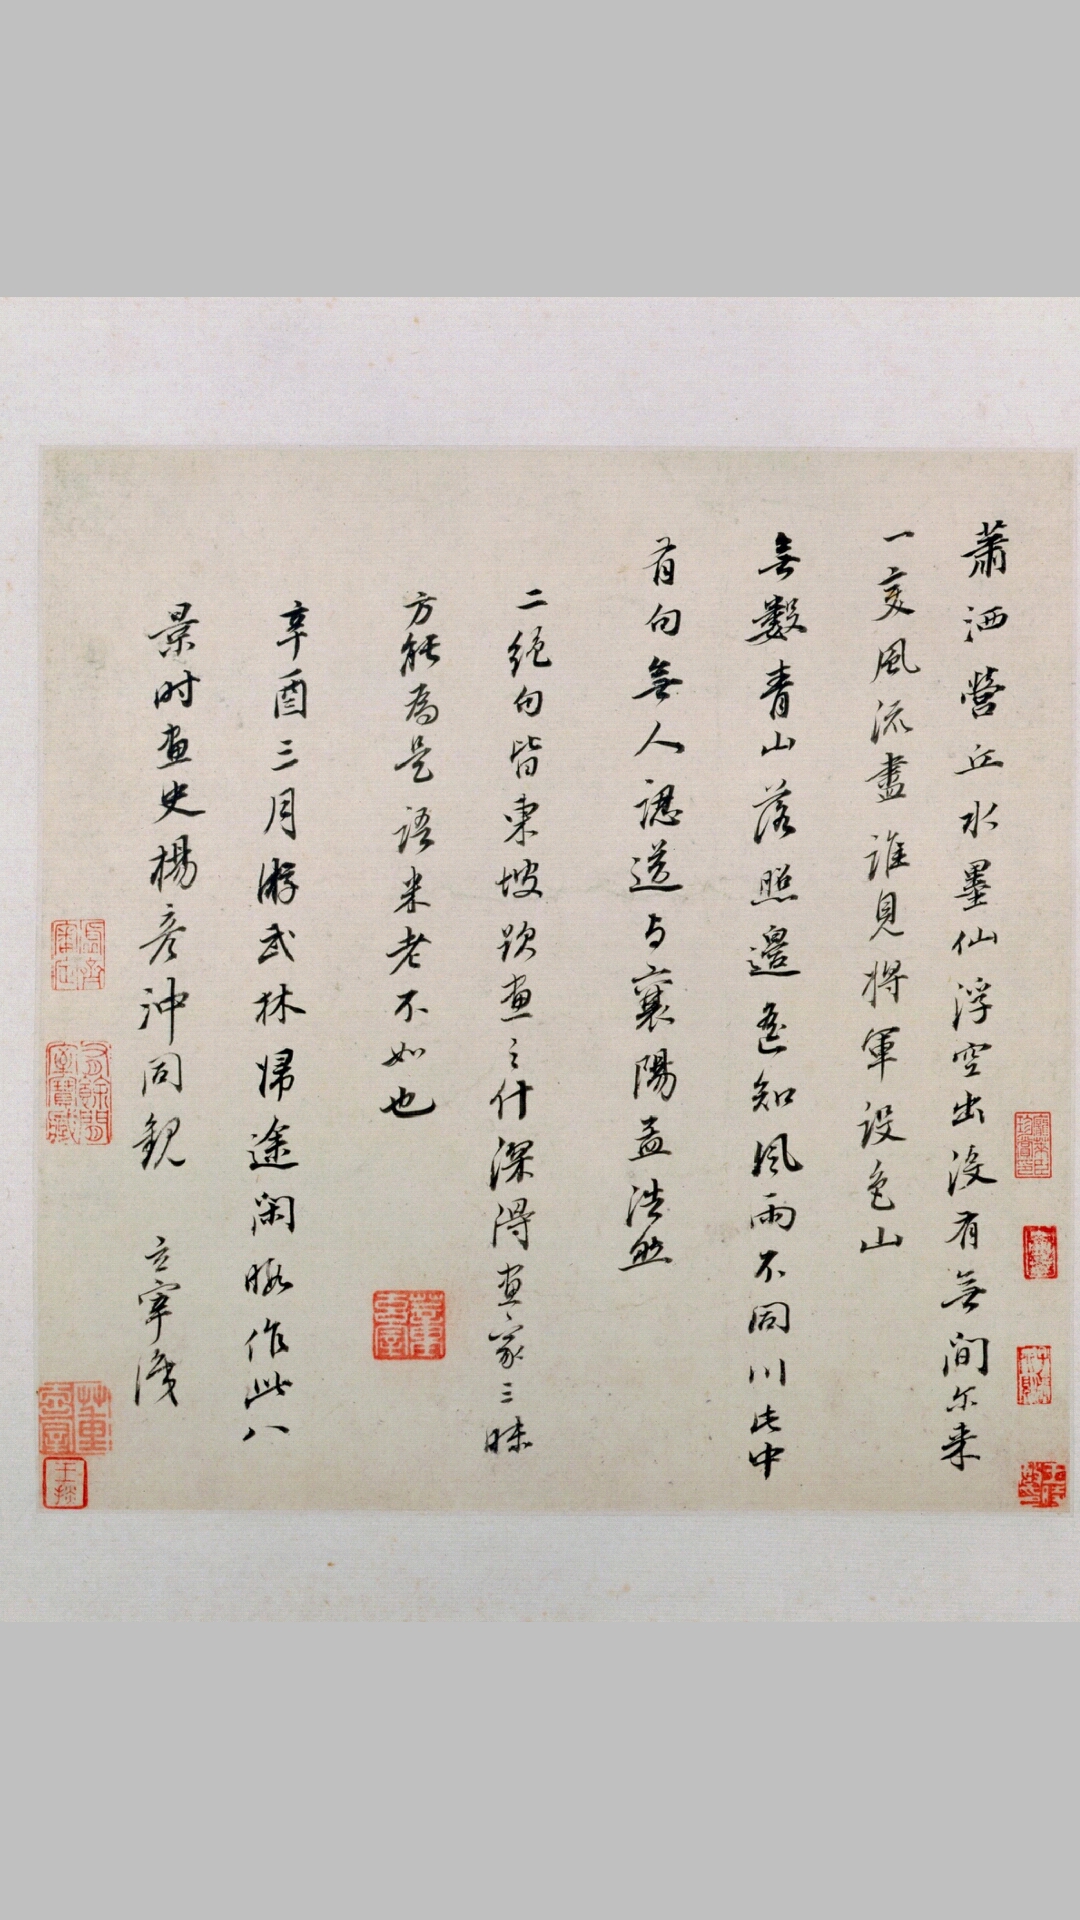 蕭洒營丘水墨仙浮空出沒有無間尔来
一變風流盡誰見將軍設色山
無數青山落照邊遙知風雨不同川此中
有句無人識送与襄陽孟浩然
二絕句皆東坡題畫之什深得畫家三昧
方能為是語米老不如也
辛酉三月游武林歸途閑暇作此八
景时畫史楊彥沖同觀 玄宰識